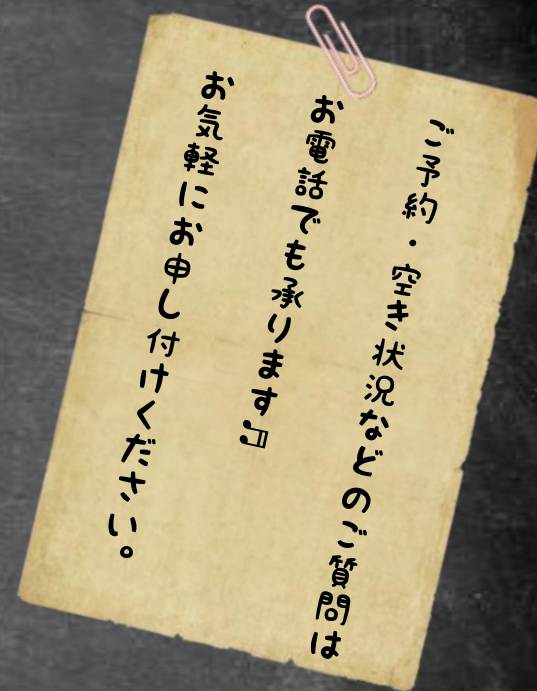 ご予約・空き状況などのご質問は
お電話でも承ります♫
お気軽にお申し付けください。